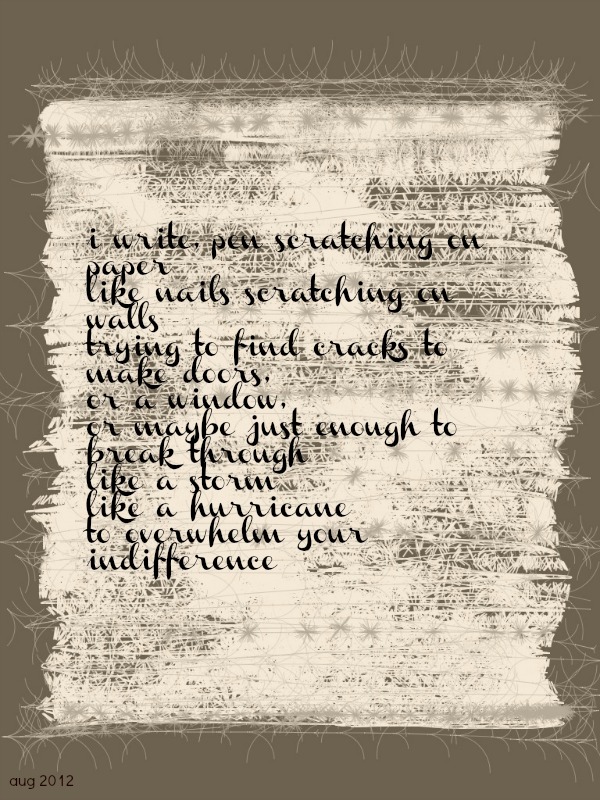 i write, pen scratching on
paper
like nails scratching on
walls
trying to find cracks to
make doors,
or a window,
or maybe just enough to
break through
like a storm
like a hurricane
to overwhelm your
indifference
aug 2012